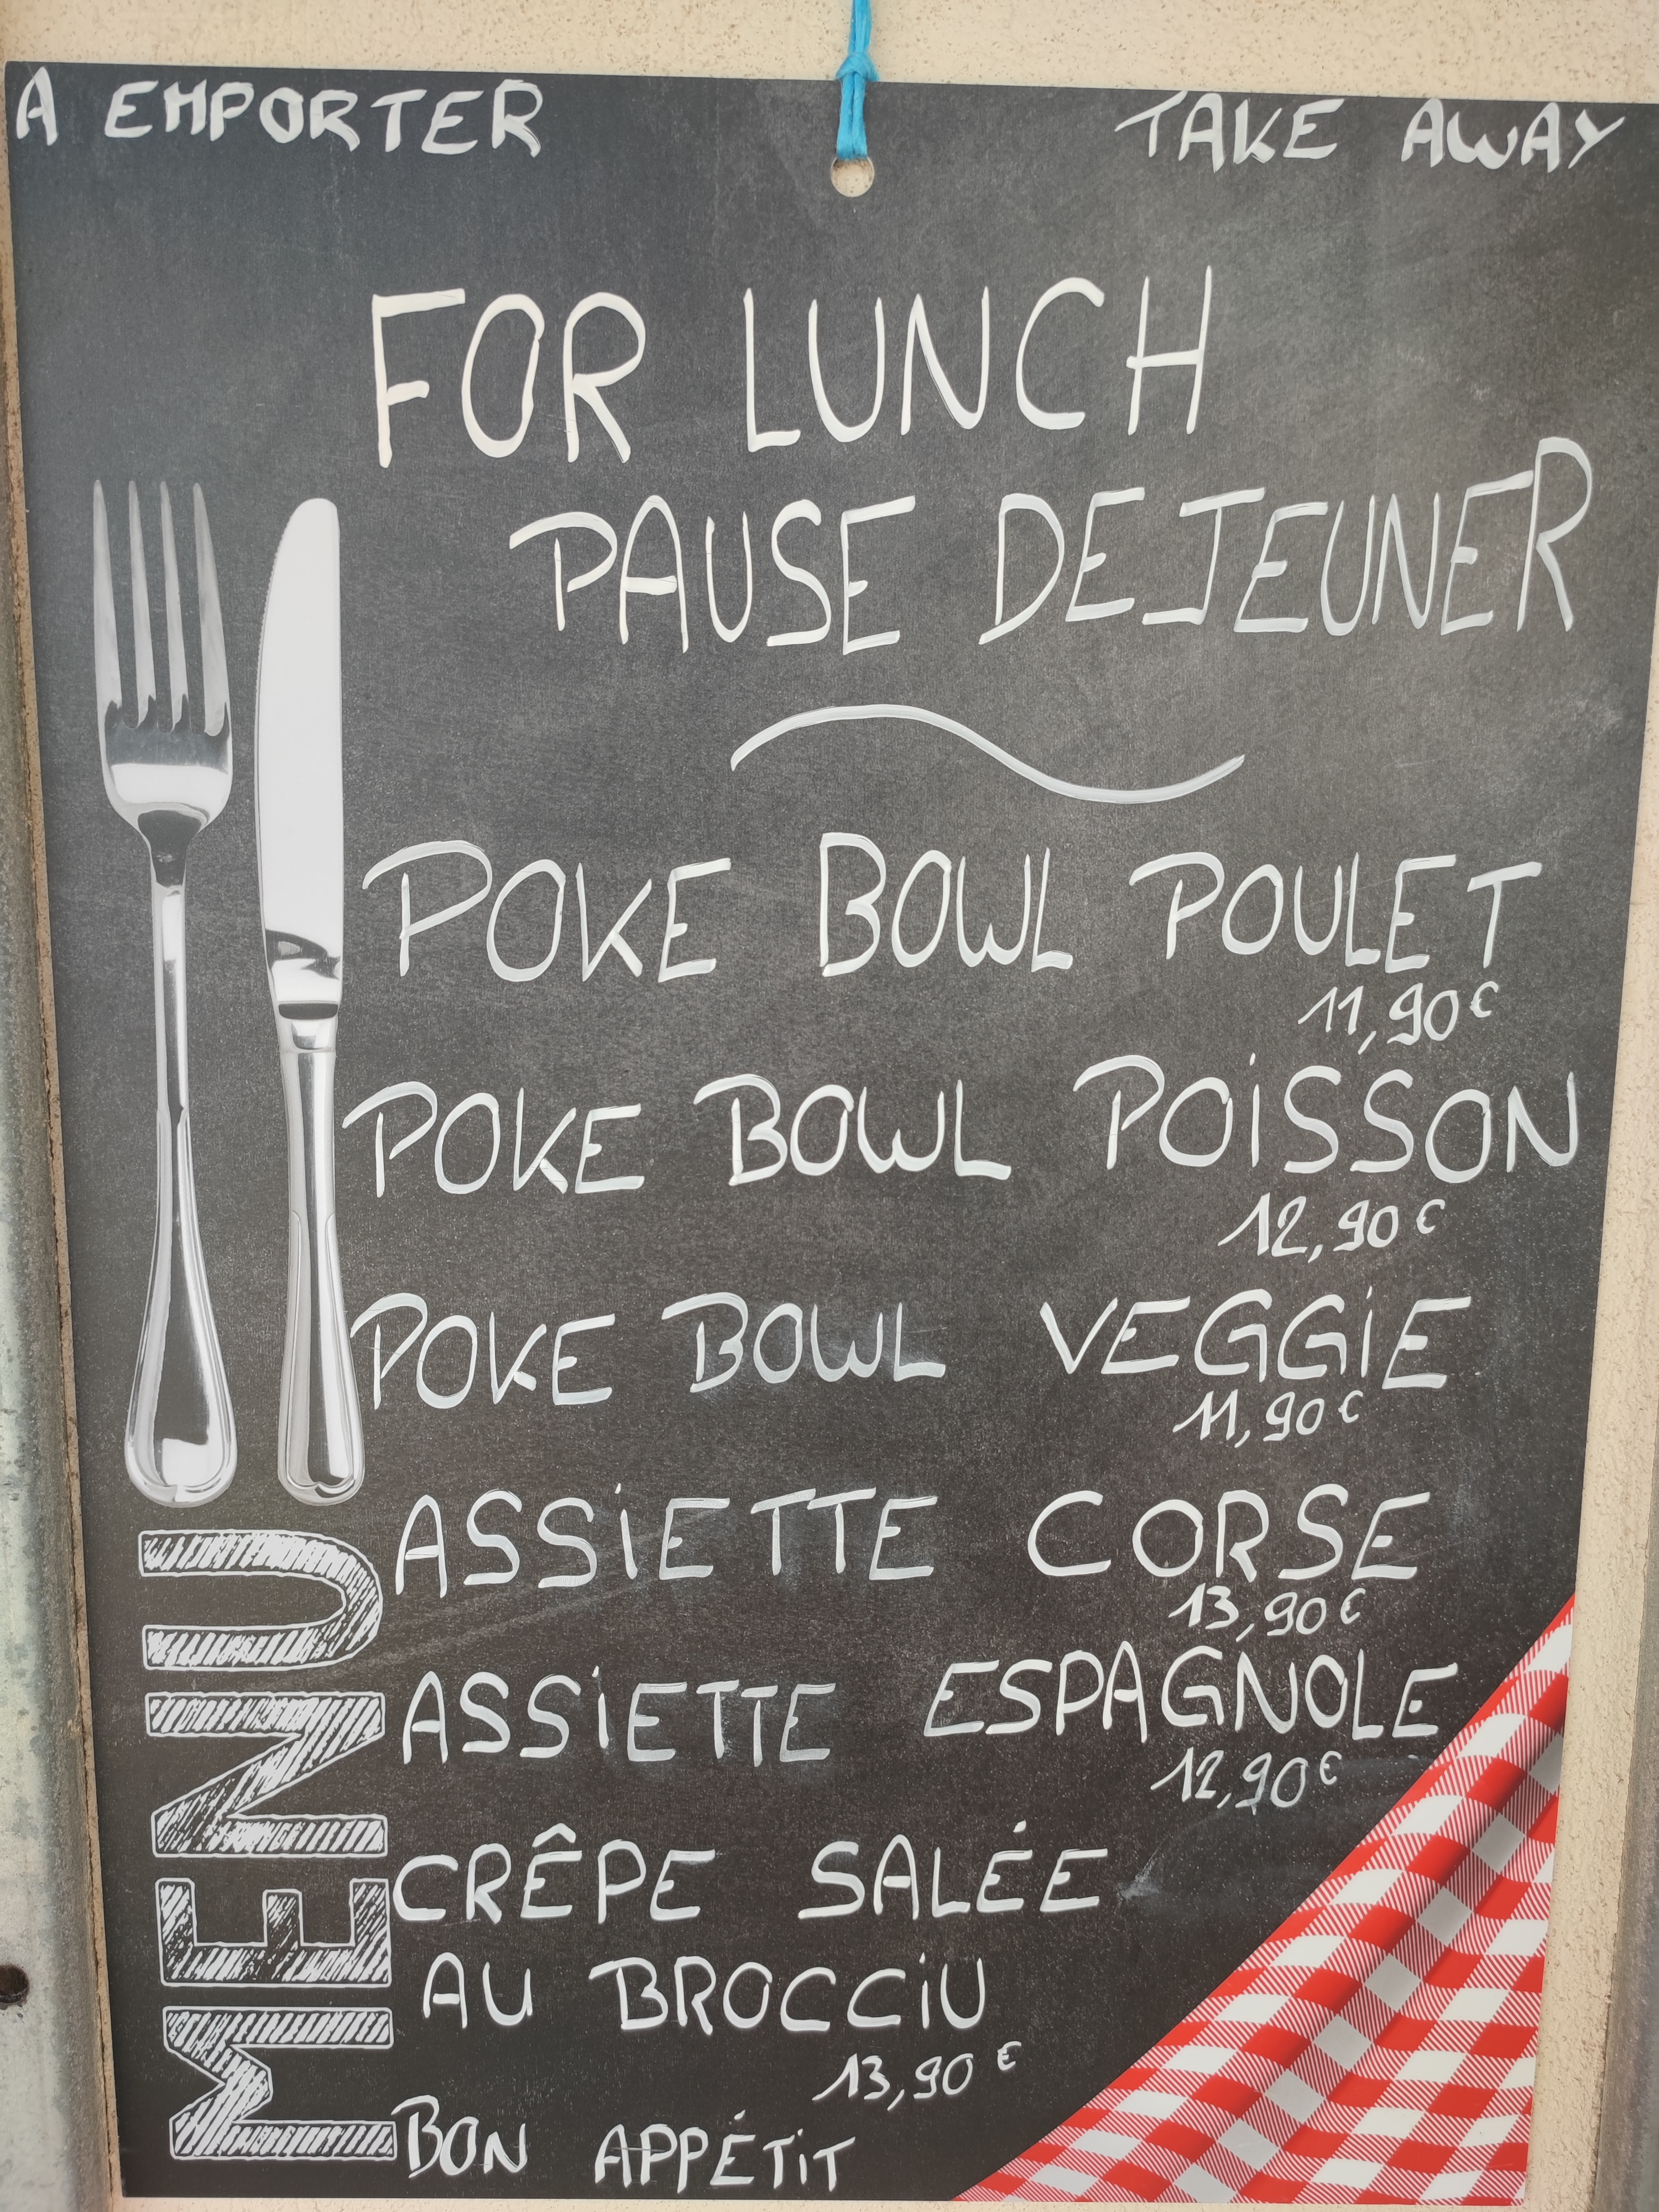 A EMPORTER
TAKE AWAY
FOR LUNCH
PAUSE DEJEUNER
POKE BOWL POULET
11,90€
POKE BOWL POISSON
12,90€
POKE BOWL VEGGIE
11,90€
ASSIETTE CORSE
13,90€
ASSIETTE ESPAGNOLE
12,90€
CRÊPE SALÉE
AU BROCCIU
13,90€
BON APPÉTIT
MENU